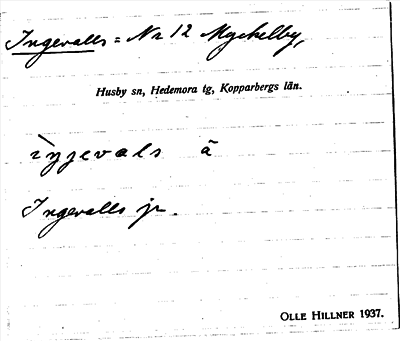 Ingevalls = Nr 12 Myckelby,
Husby sn, Hedemora tg, Kopparbergs län.
ìŋŋevals å
Ingevalls jr.
OLLE HILLNER 1937.